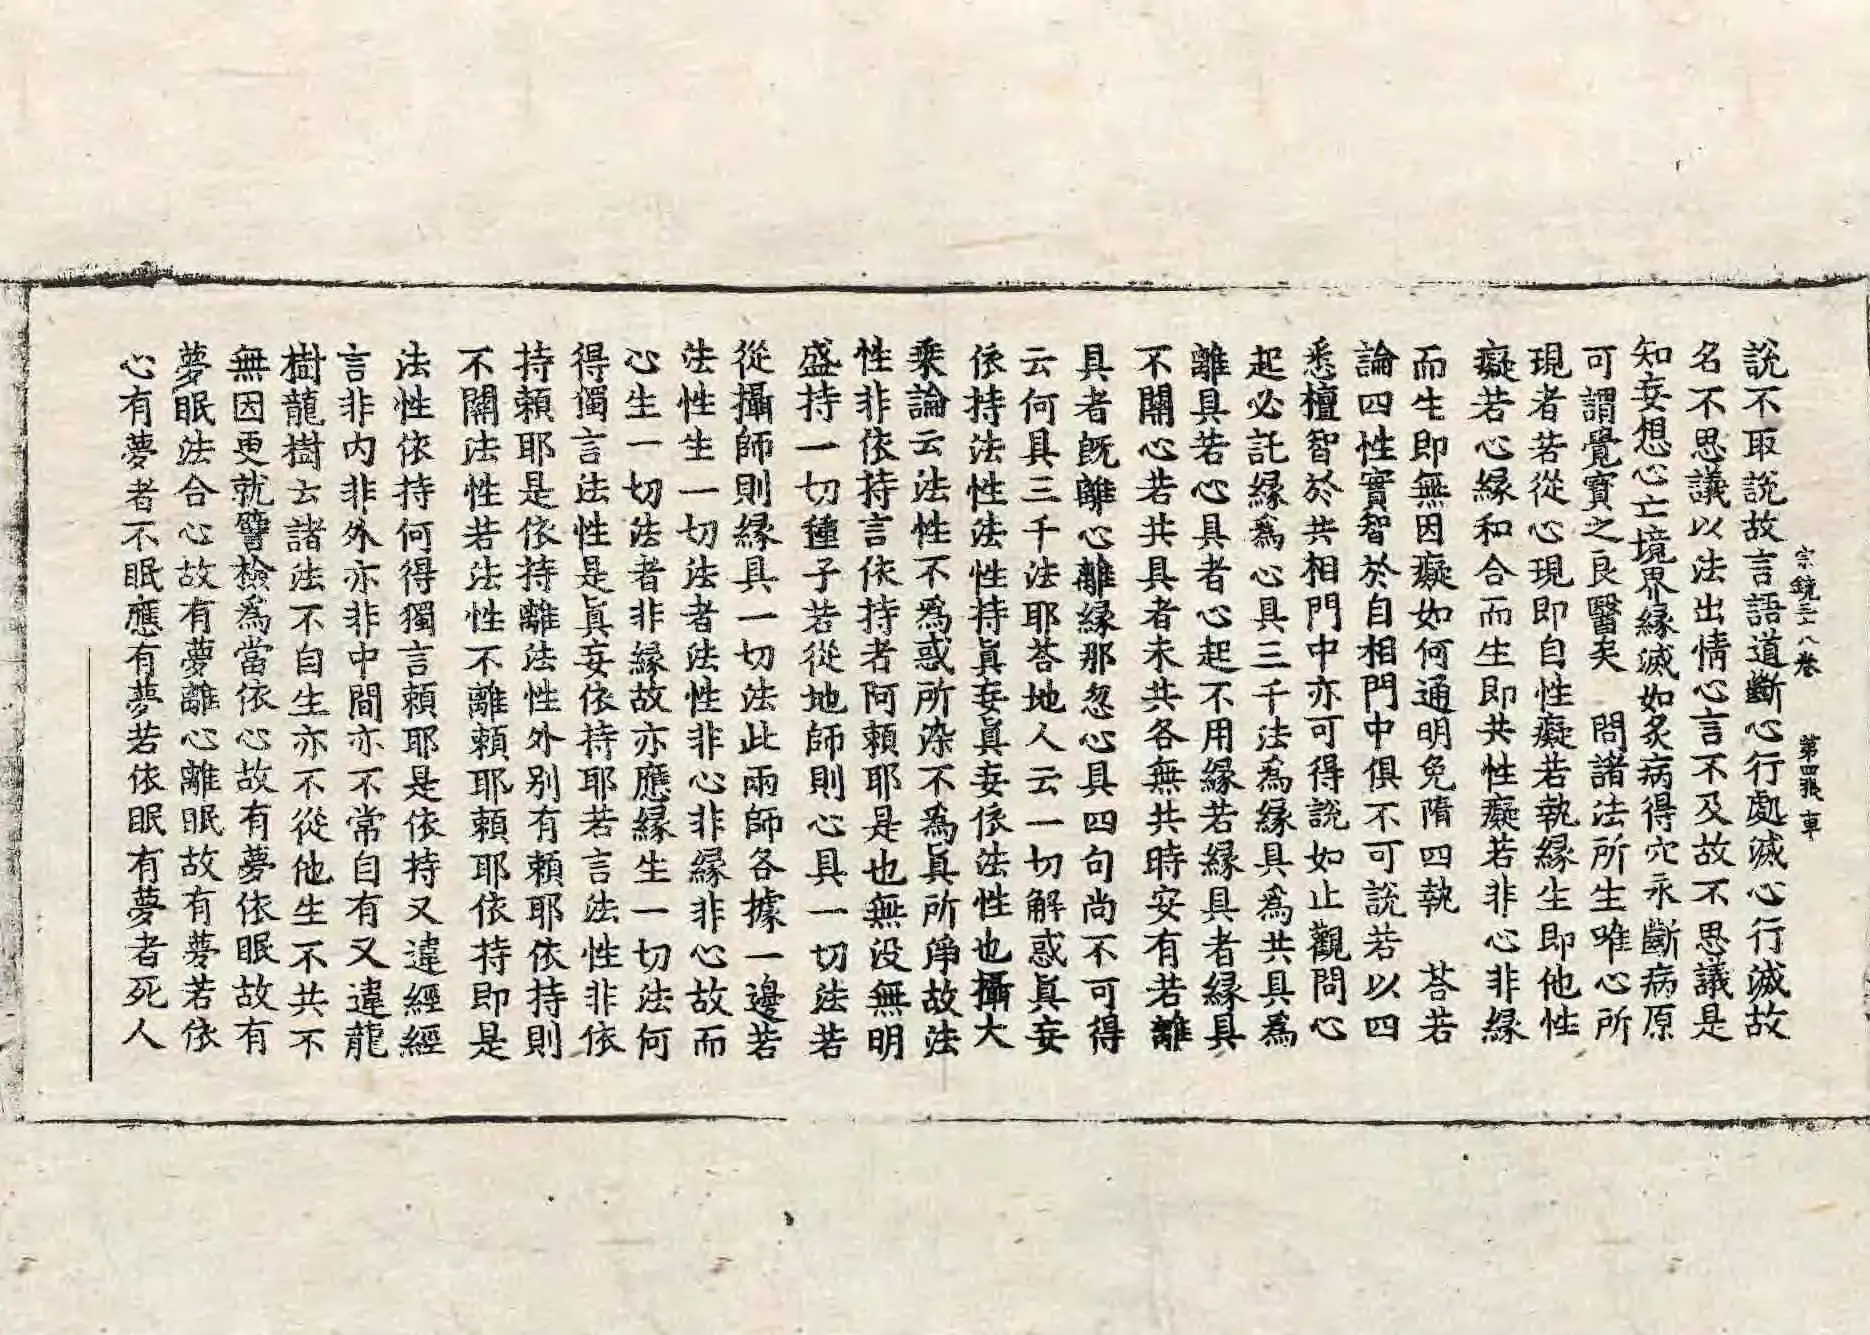 說不取說故言語道斷心行處滅心行滅故
宗鏡三十八卷 第四張 車
名不思議以法出情心言不及故不思議是
知妄想心亡境界緣滅如炙病得穴永斷病原
可謂覺寶之良醫矣 問諸法所生唯心所
現者若從心現即自性癡若執緣生即他性
癡若心緣和合而生即共性癡若非心非緣
而生即無因癡如何通明免隋四執 荅若
論四性實智於自相門中俱不可說若以四
悉檀智於共相門中亦可得說如止觀問心
起必託緣為心具三千法為緣具為共具為
離具若心具者心起不用緣若緣具者緣具
不關心若共具者未共各無共時安有若離
具者既離心離緣那忽心具四句尚不可得
云何具三千法耶荅地人云一切解惑真妄
依持法性法性持真妄真妄依法性也攝大
乘論云法性不為惑所染不為真所淨故法
性非依持言依持者阿頼耶是也無没無明
盛持一切種子若從地師則心具一切法若
從攝師則緣具一切法此兩師各據一邊若
法性生一切法者法性非心非緣非心故而
心生一切法者非緣故亦應緣生一切法何
得獨言法性是真妄依持耶若言法性非依
持頼耶是依持離法性外別有頼耶依持則
不關法性若法性不離頼耶頼耶依持即是
法性依持何得獨言頼耶是依持又違經經
言非內非外亦非中間亦不常自有又違龍
樹龍樹云諸法不自生亦不從他生不共不
無因更就譬檢為當依心故有夢依眠故有
夢眠法合心故有夢離心離眠故有夢若依
心有夢者不眠應有夢若依眠有夢者死人